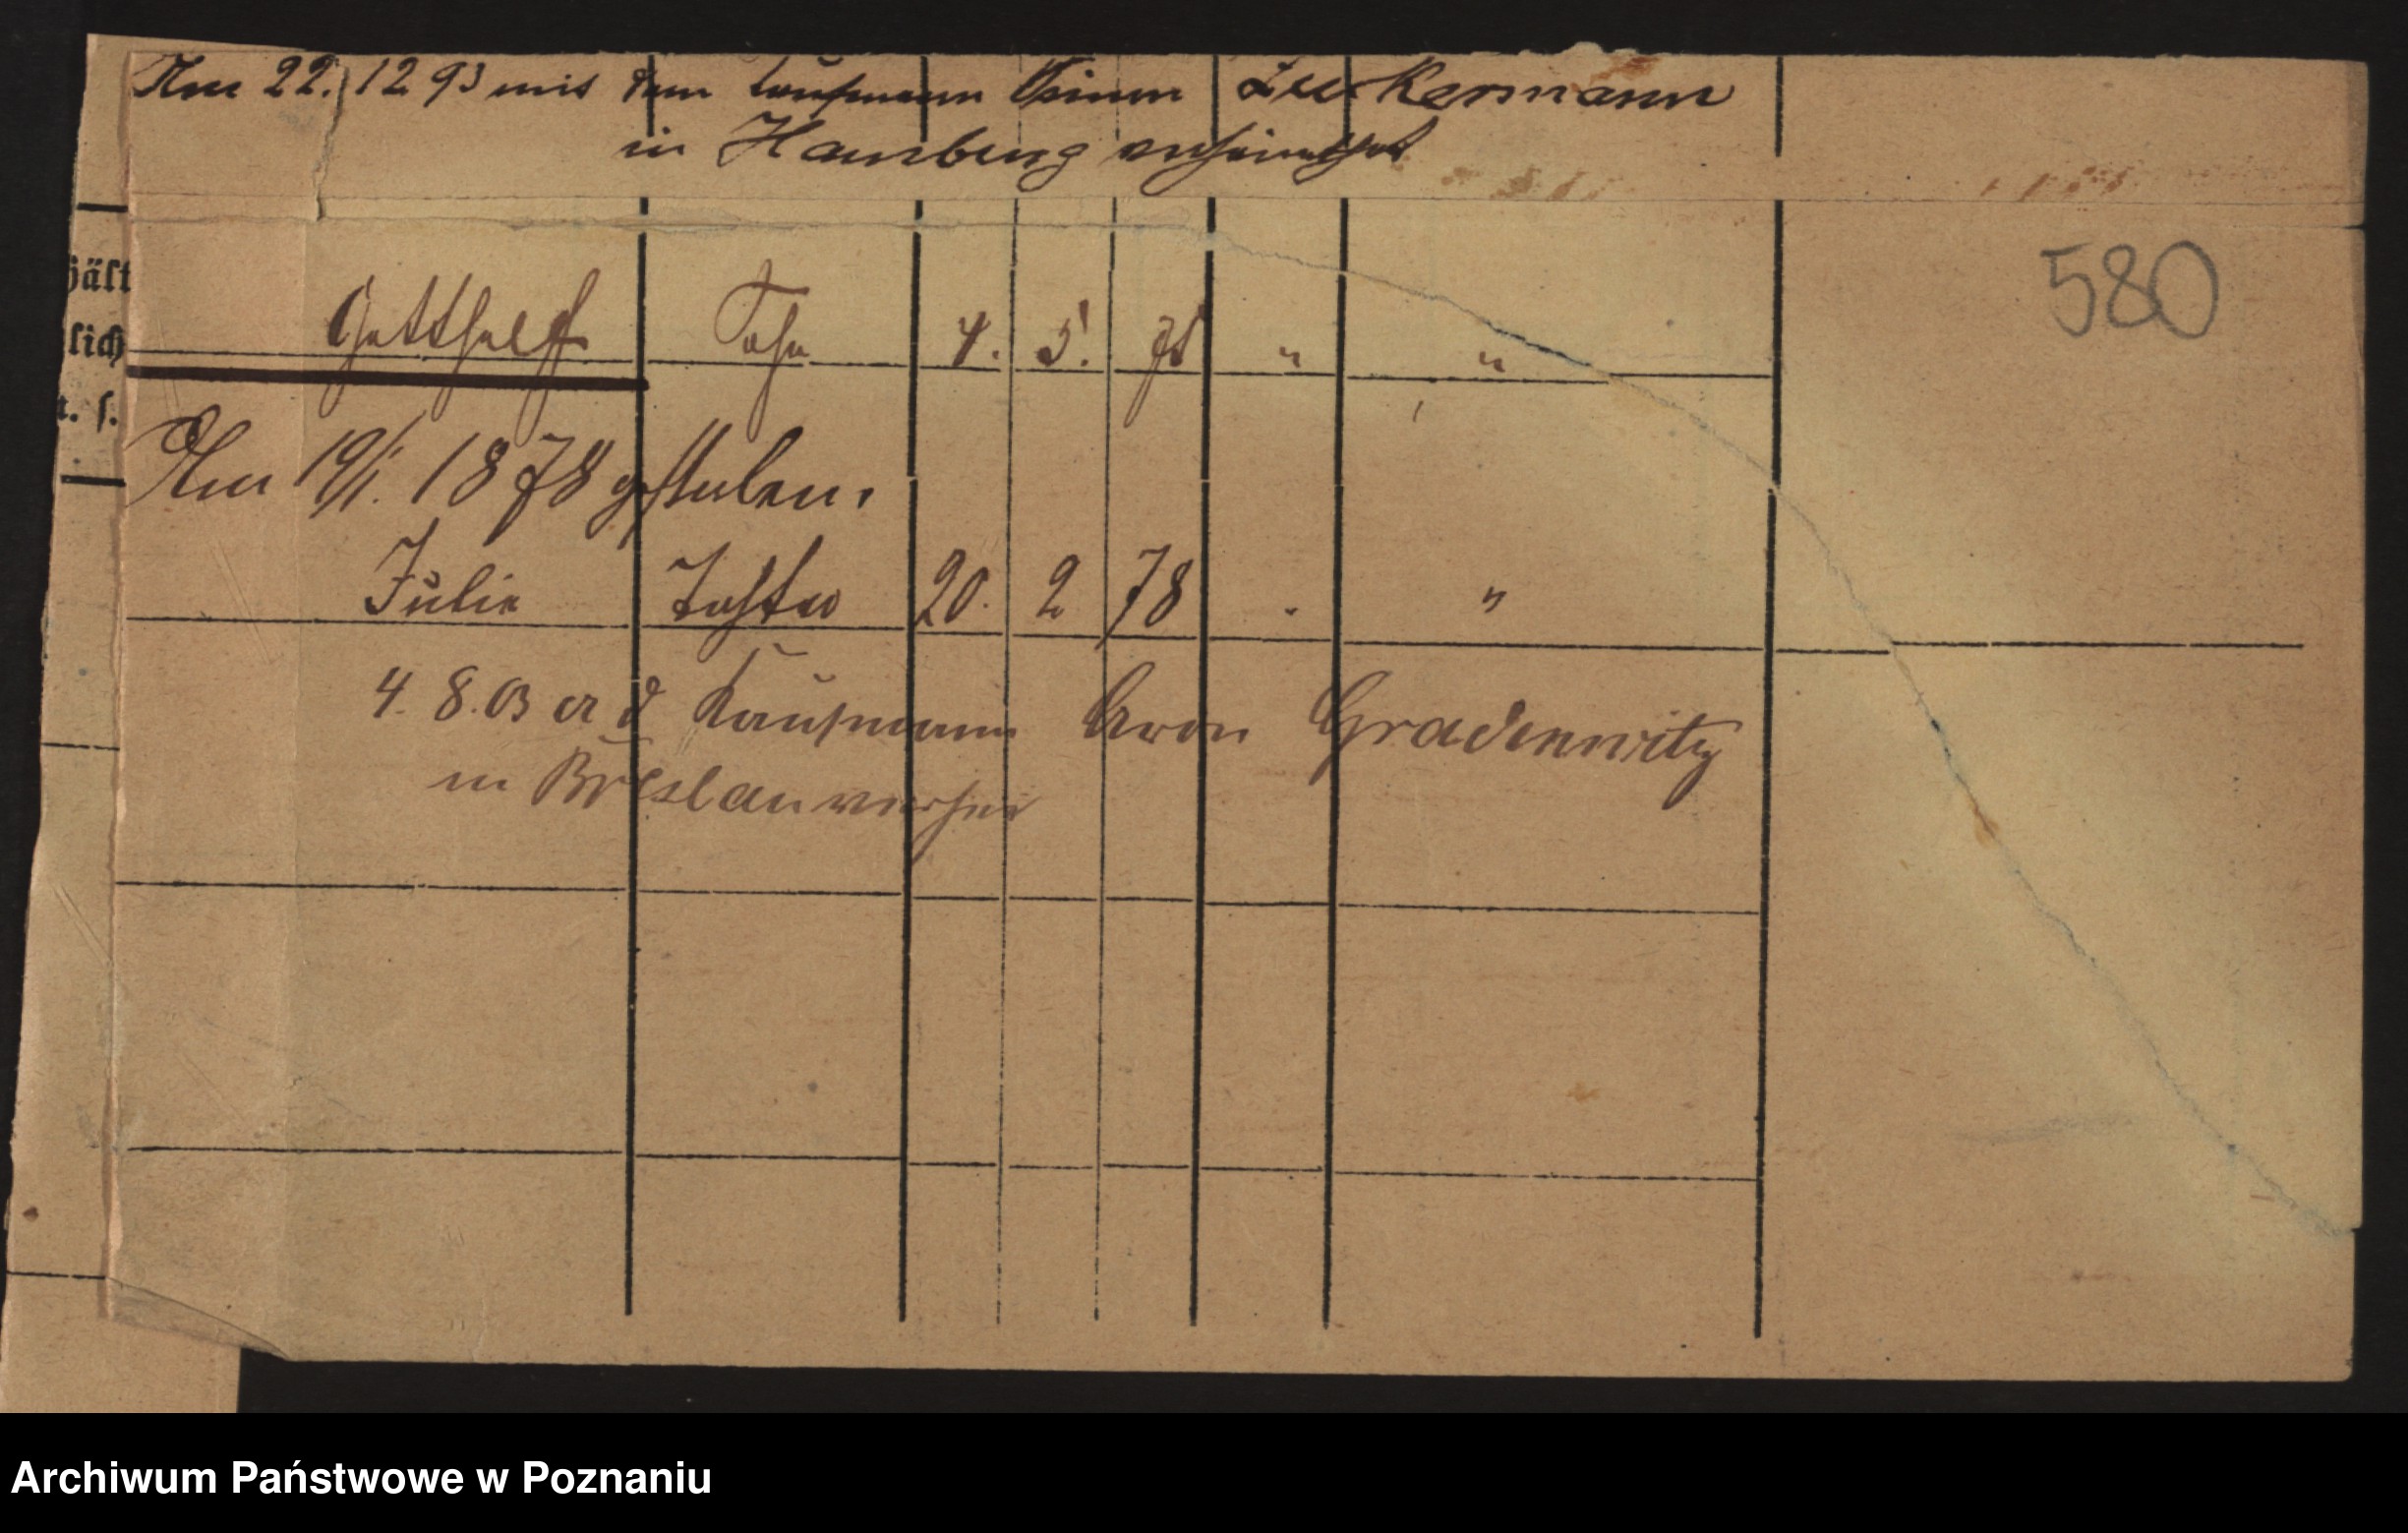 Am 22. 12 93 mit dem Kaufmann Simon Zuckermann
in Hamburg verheirathet
580
hält
lich
t. s.
Gotthelf Sohn 4. 5. " "
Am 19/1. 1878 gestorben.
Julie Tochter 20. 2 78 . "
4. 8. 03 a d Kaufmann Aron Gradenwitz
in Breslau verhei
Archiwum Państwowe w Poznaniu